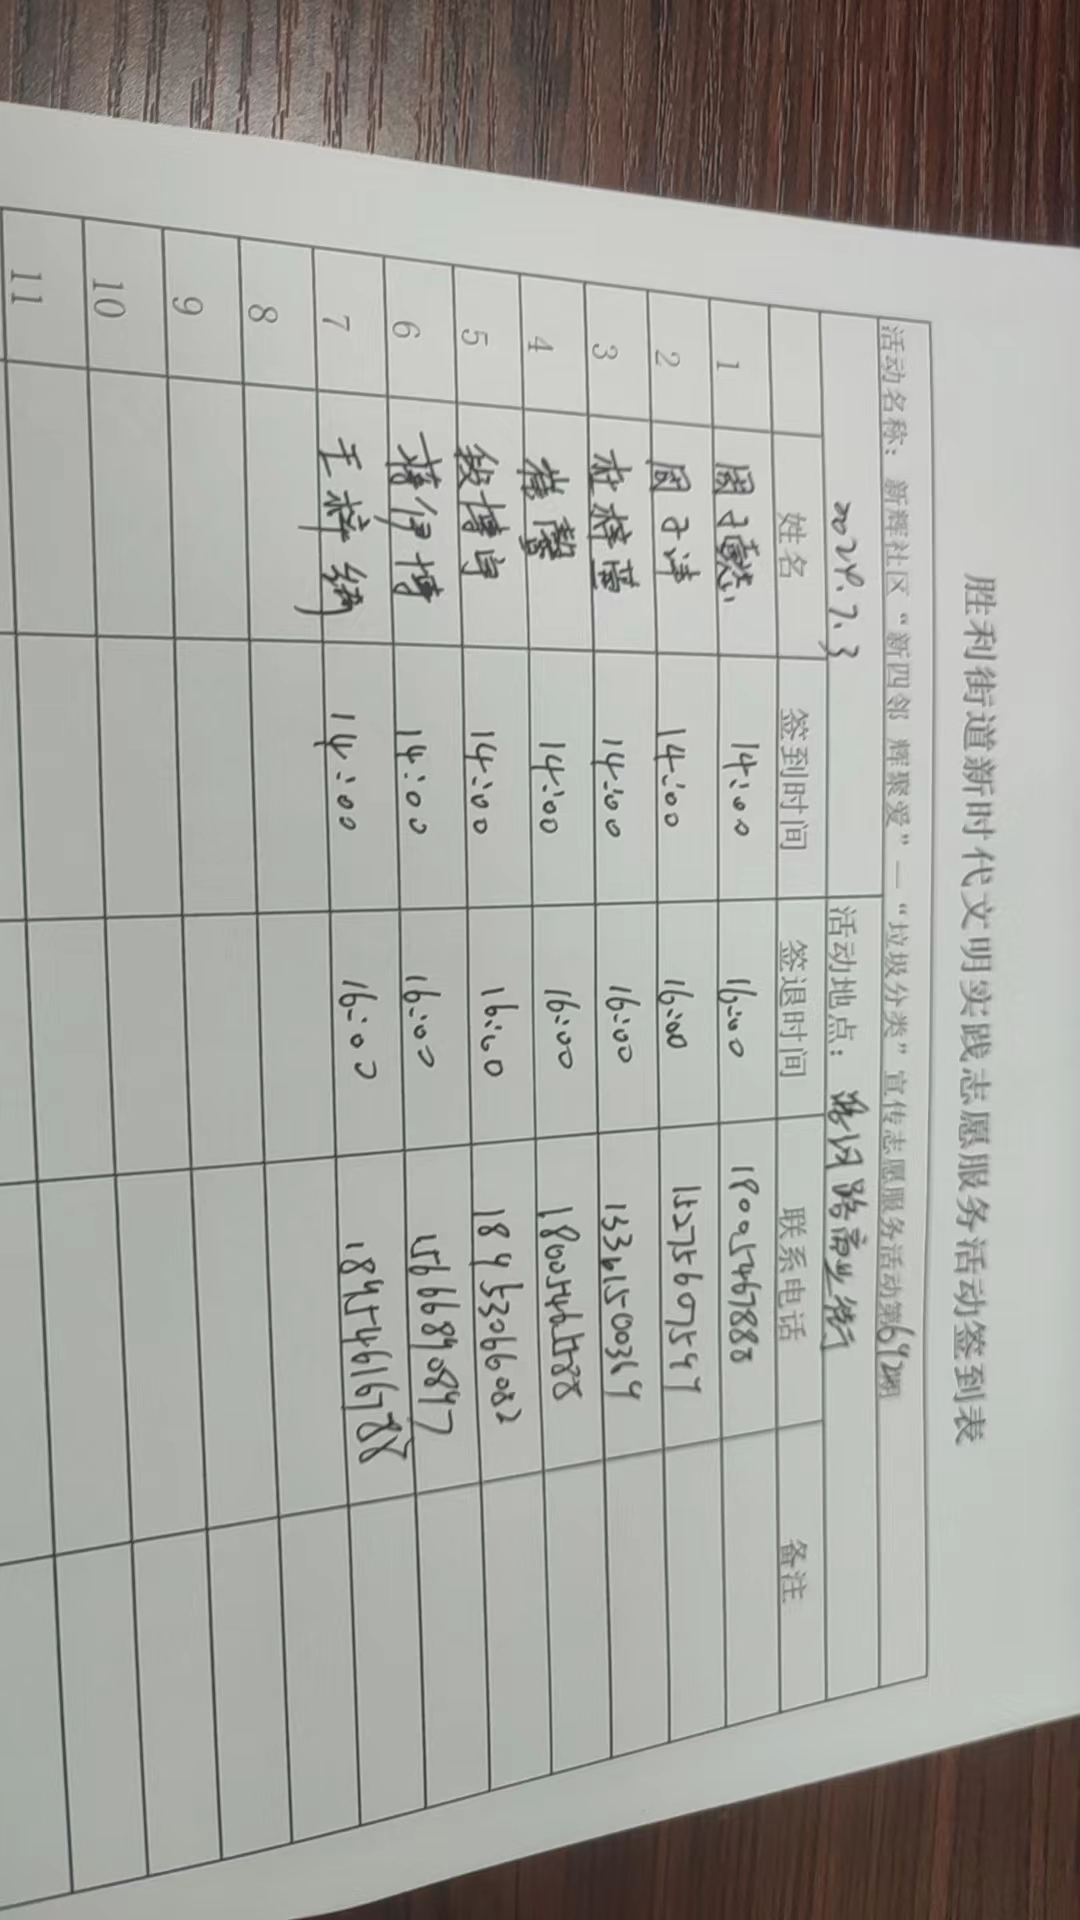 胜利街道新时代文明实践志愿服务活动签到表
活动名称：新辉社区“新四邻 辉聚爱”—“垃圾分类”宣传志愿服务活动第642期
2024.7.3 活动地点： 路商业街
姓名 签到时间 签退时间 联系电话 备注
1 周子懿 14:00 16:00 18005467888
2 周子涛 14:00 16:00 15275607597
3 杜梓萱 14:00 16:00 13361500364
4 馨 14:00 16:00
5 博宇 14:00 16:00 18953066082
6 蒋伊博 14:00 16:00 15666890897
7 王梓 14:00 16:00 18954616788
8
9
10
11